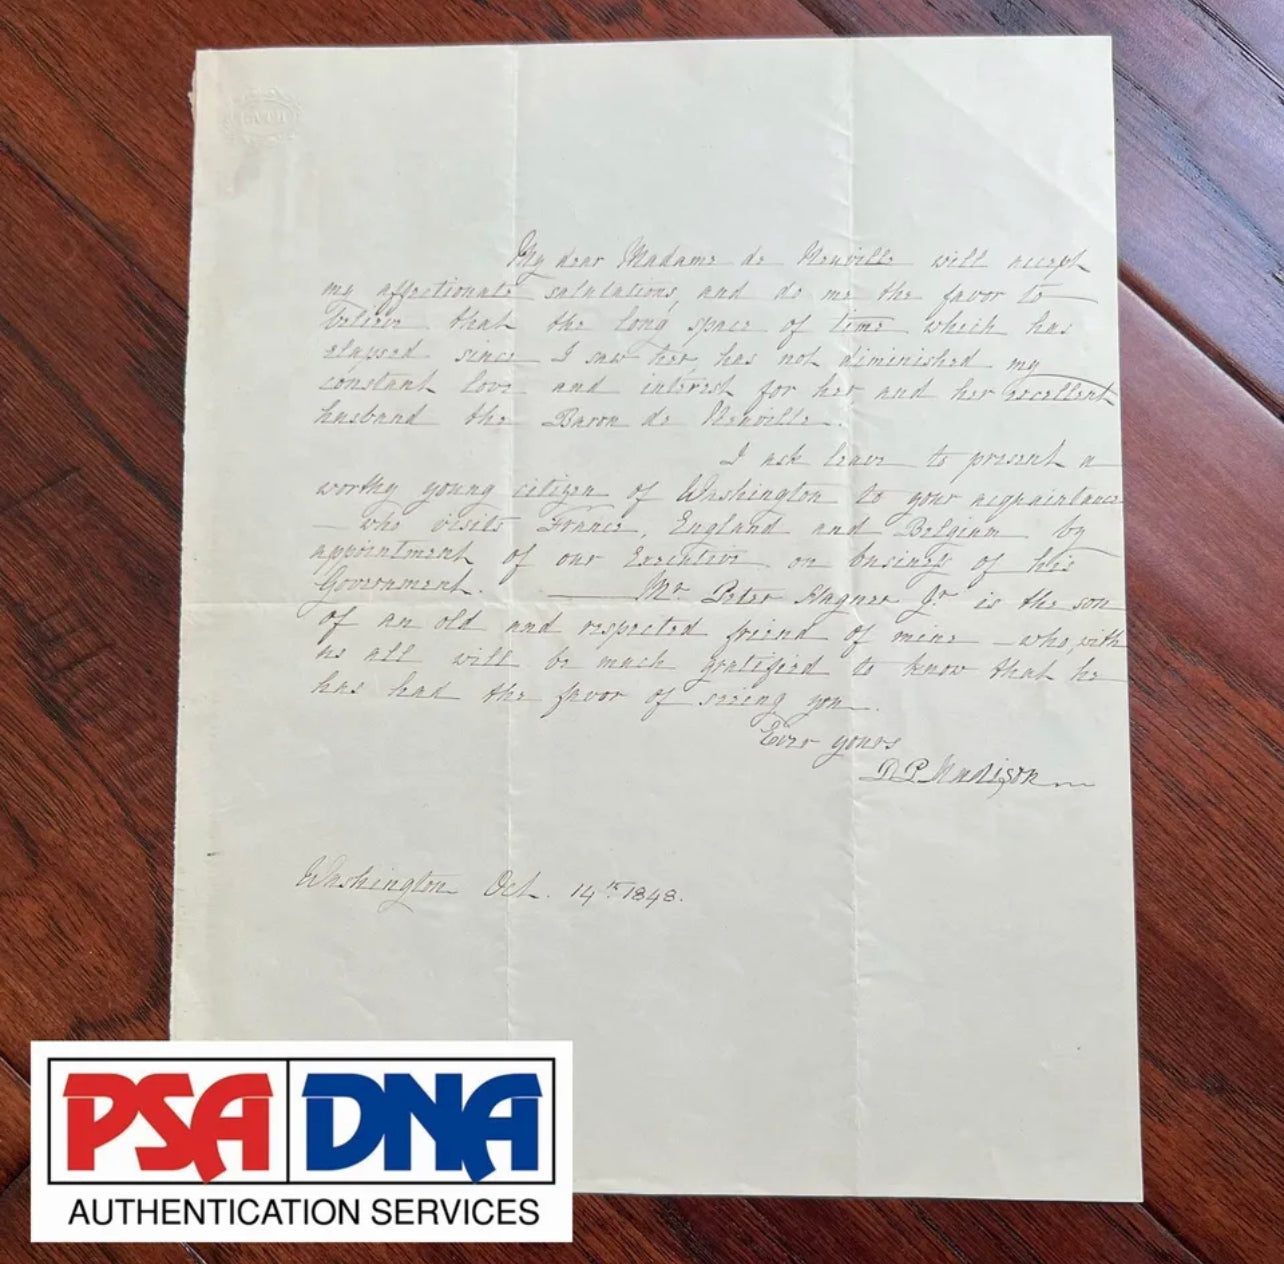 BATH
My dear Madame de Neuville will accept
my affectionate salutations, and do me the favor to
believe that the long space of time which has
elapsed since I saw her, has not diminished my
constant love and interest for her and her excellent
husband the Baron de Neuville.
I ask leave to present a
worthy young citizen of Washington to your acquaintance
— who visits France, England and Belgium by
appointment of our Executive on business of his
Government. — Mr. Peter Hagner Jr. is the son
of an old and respected friend of mine — who, with
us all will be much gratified to know that he
has had the favor of seeing you.
Ever yours
D. P. Madison
Washington Oct. 14th 1848.
PSA DNA
AUTHENTICATION SERVICES